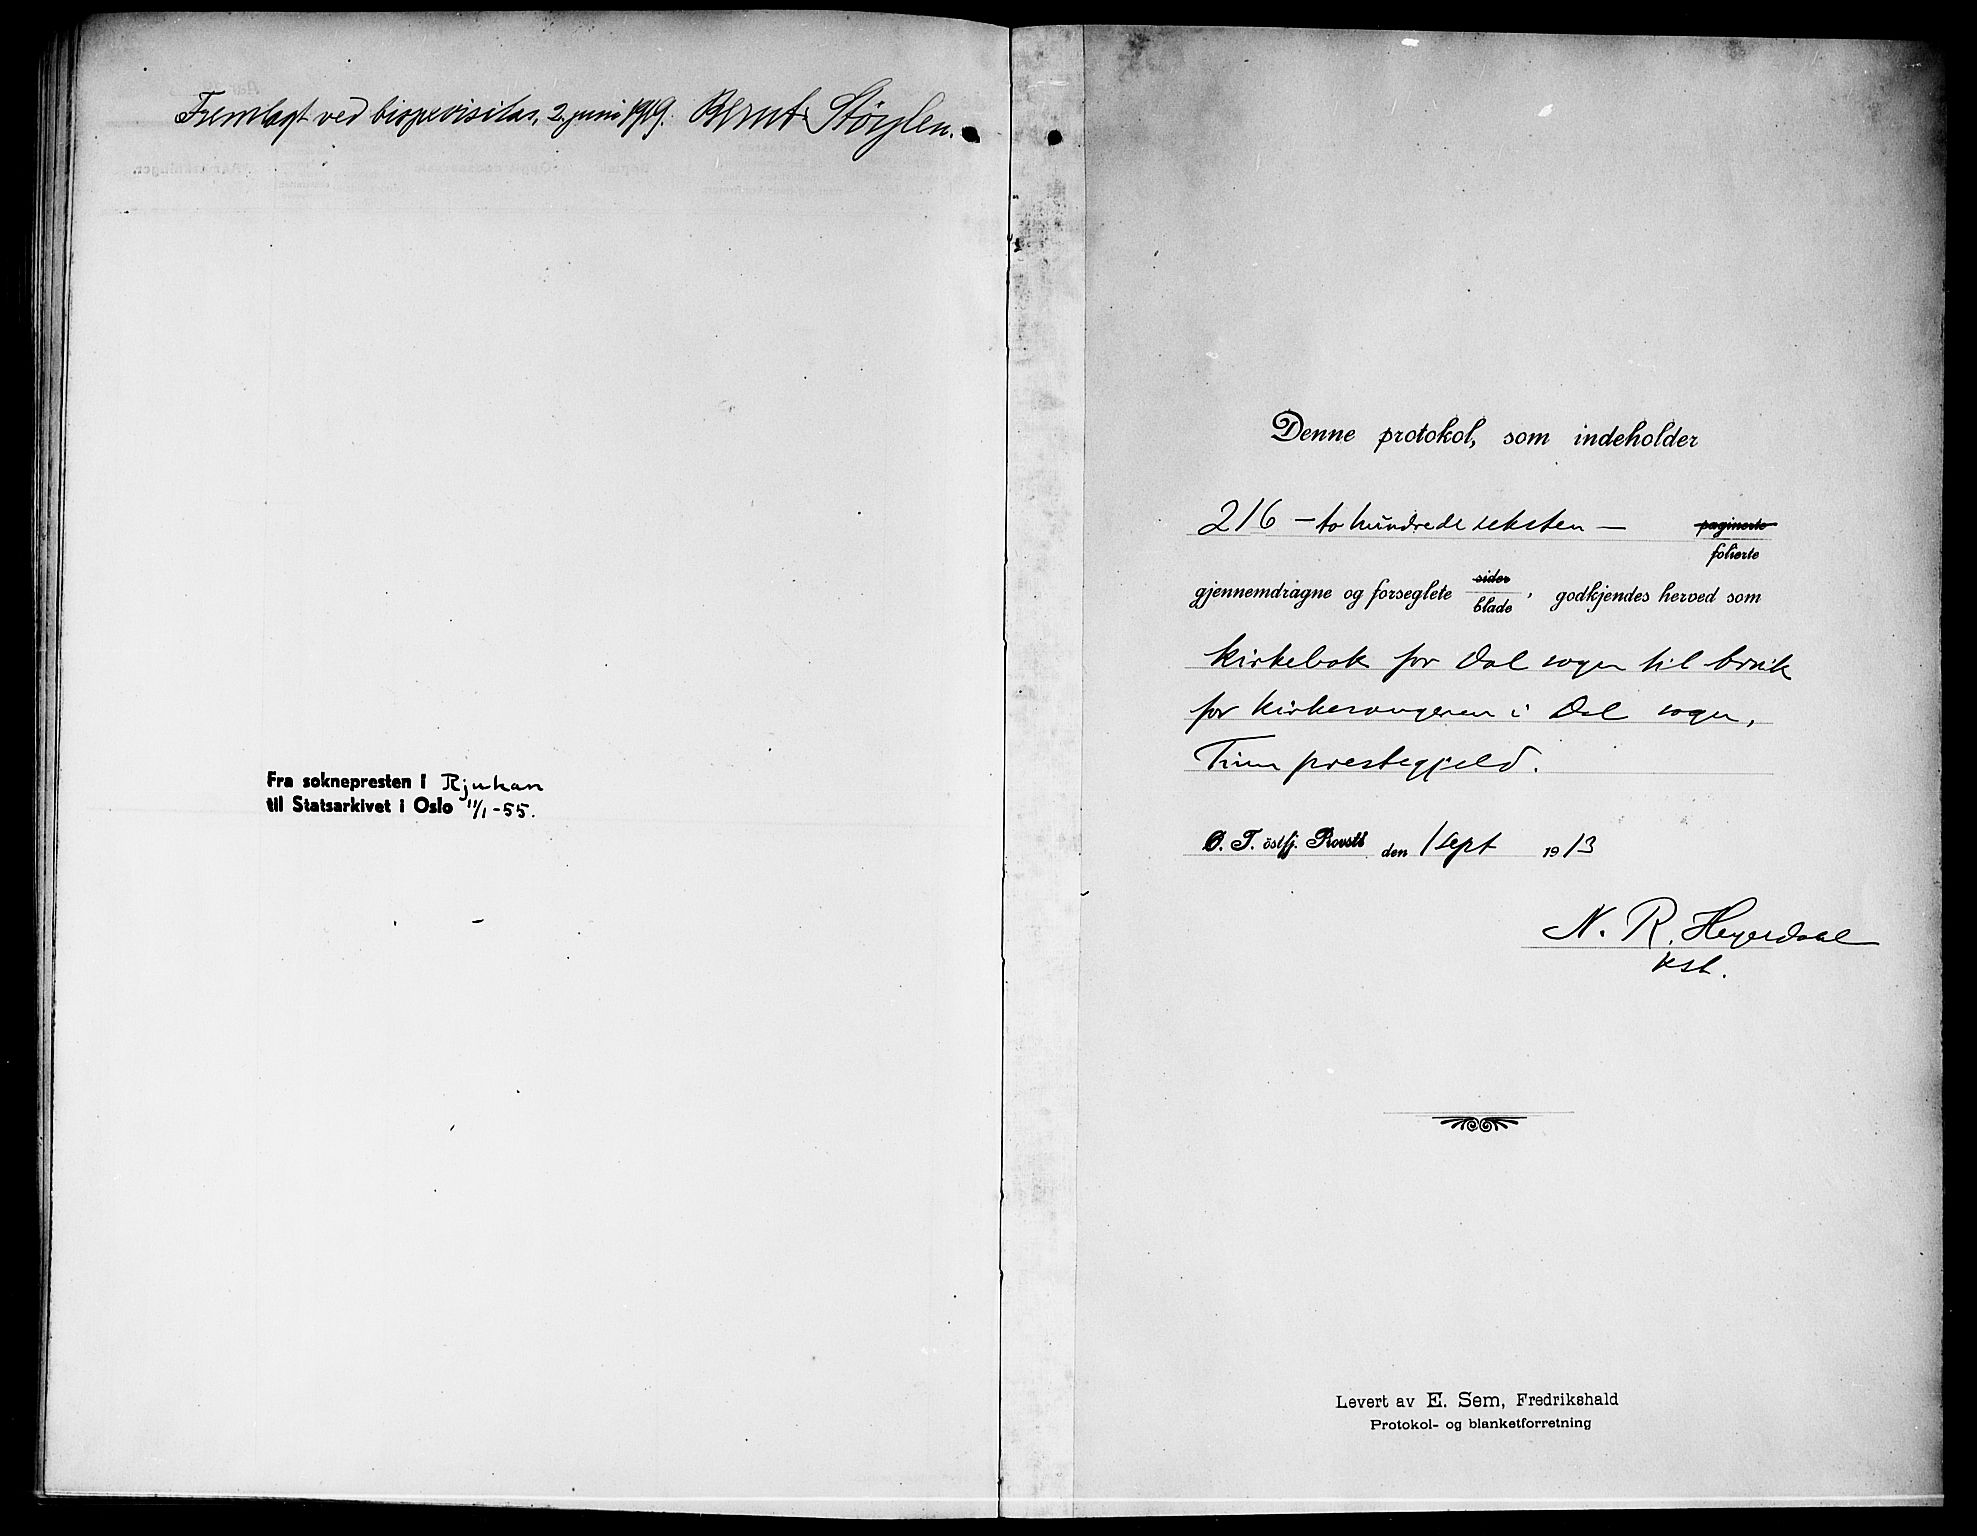 Fremlagt ved bispevisitas, 2. juni 1919. Bernt Støylen.
Fra soknepresten i Rjukan
til Statsarkivet i Oslo 11/1-55.
Denne protokol, som indeholder
216 – to hundrede seksten – paginerte
folierte
gjennemdragne og forseglete sider
blade, godkjendes herved som
kirkebok for Dal sogn til bruk
for kirkesangeren i Dal sogn,
Tinn prestegjeld.
Ø. T. östfj. Provsti den 1 sept 1913
N. R. Heyerdahl
kst.
Levert av E. Sem, Fredrikshald
Protokol- og blanketforretning